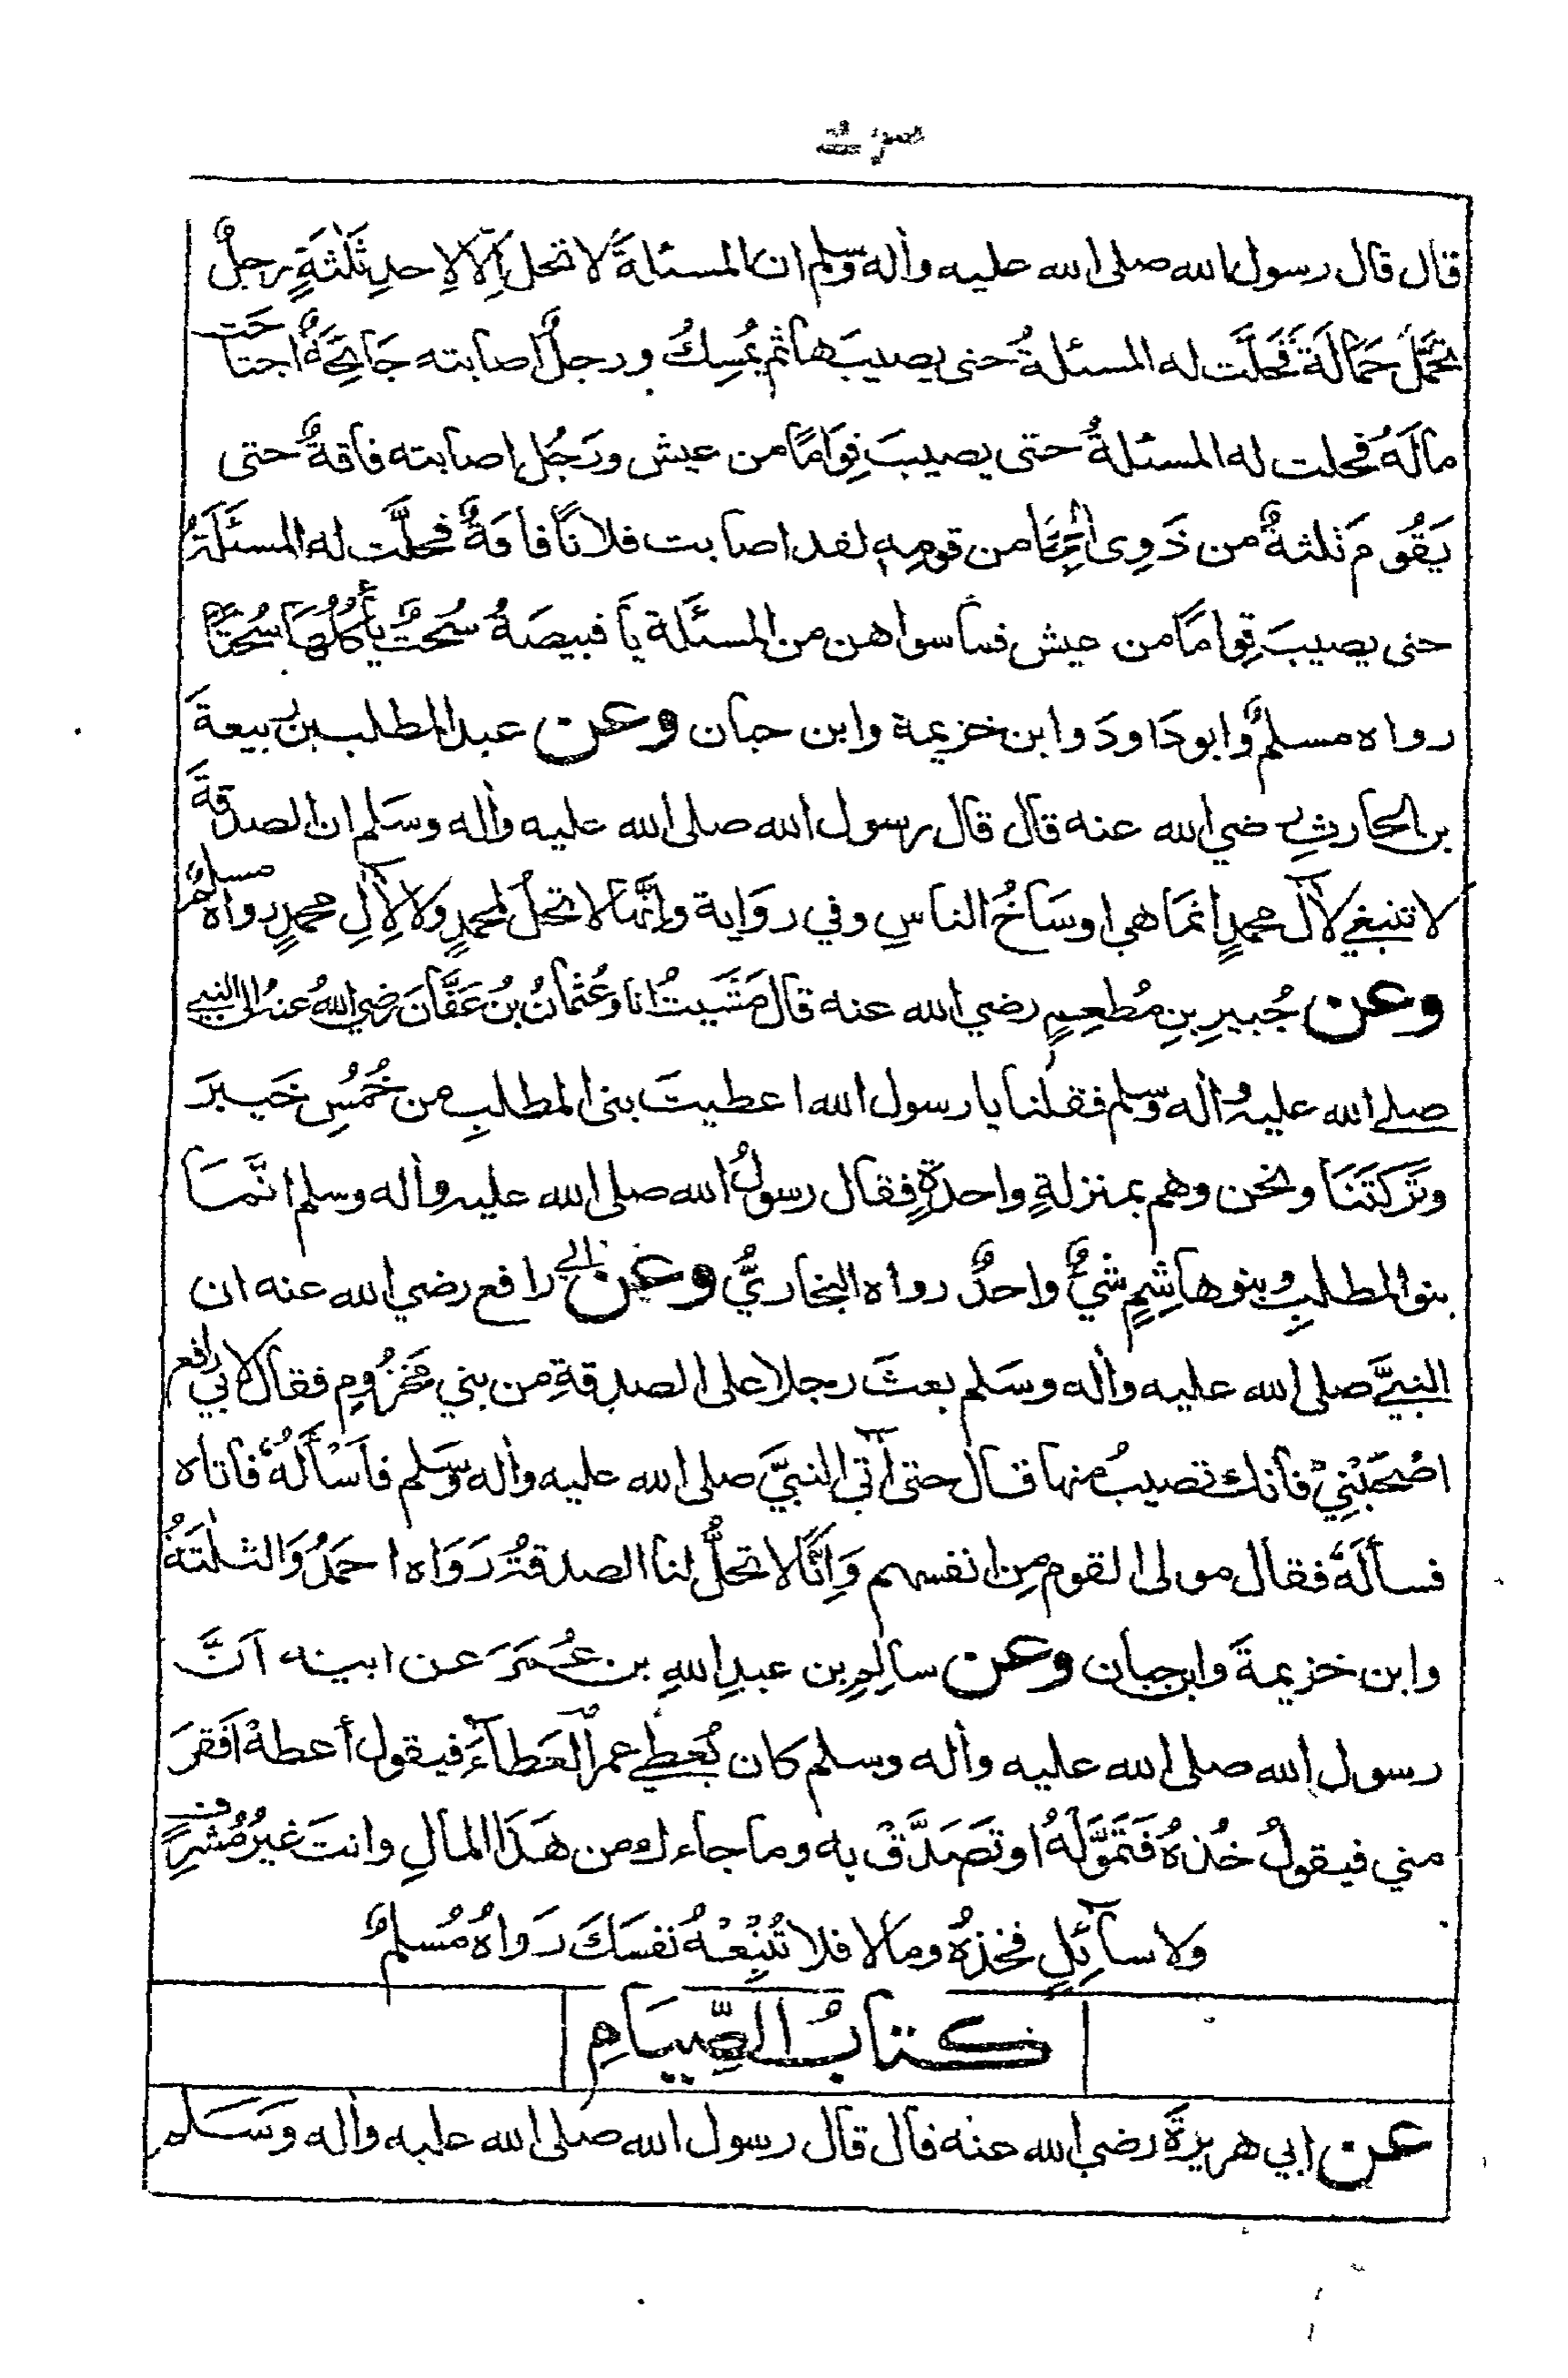 قال قال رسول الله صلى الله عليه وأله وسلم ان المسئلةَ لا تحل اِلّا لِاحدِ ثَلٰثةٍ رجلٌ
تحمَّلَ حَمَالَةً فَحَلَّت له المسئلةُ حتى يصيبَها ثم يُمسِكُ ورجلٌ اصابته جَائِحَةٌ اجتاحَت
مالَهُ فحلت له المسئلةُ حتى يصيبَ قِوَامًا من عيش ورَجُل اصابته فاقةٌ حتى
يَقُومَ ثلثةٌ من ذَوِى الحِجَا من قومِهِ لقد اصابت فلانًا فاقةٌ فحلَّت له المسئَلَةُ
حتى يصيبَ قِوامًا من عيش فما سواهن من المسئَلة يا قبيصَةُ سُحتٌ يأكلُهَا سُحتًا
رواه مسلمٌ وابو دَاودَ وابن خزيمة وابن حبان وعن عبد المطلب بن ربيعةَ
بن الحارثِ رضي الله عنه قال قال رسول الله صلى الله عليه وأله وسَلم ان الصدقةَ
لا تنبغي لآل محمدٍ انمَا هي اوسَاخُ الناسِ وفي روَاية وانَّها لا تحلُ لمحمدٍ ولا لِاٰلِ محمدٍ رواه مسلمٌ
وعن جُبيرِ بنِ مُطعِمٍ رضي الله عنه قال مَشَيتُ انا وعُثمانُ بنُ عَفَّانَ رضي اللهُ عنهُ الى النبي
صلى الله عليهِ واٰله وسلم فقلنا يا رسول الله اعطيتَ بنى المطلبِ من خُمُسِ خَيبرَ
وتَركتَنَا ونحن وهم بمنزلةٍ واحدةٍ فقال رسولُ الله صلى الله عليه وأله وسلم انَّمَا
بنو المطلبِ وبنو هاشِمٍ شيءٌ واحدٌ رواه البخاريُّ وعن ابي رافع رضي الله عنه ان
النبيَّ صلى الله عليه وأله وسَلم بعثَ رجلا على الصدقةِ من بني مَخزُومٍ فقال لابي رافع
اصْحَبْنِيْ فانك تصيبُ منها قال حتى آتي النبيَّ صلى الله عليه وأله وسَلم فاَسْألَهُ فاتاه
فسألَهُ فقال مولى القوم مِن انفسهم وَاِنَّا لا تحلُّ لنا الصدقةُ رَوَاه احمَدُ وَالثلٰثَةُ
وابن خزيمةَ وابن حبان وعن سالِمِ بن عبدِ اللهِ بن عُمَرَ عن ابيه اَنَّ
رسول الله صلى الله عليه وأله وسلم كان يُعطِي عمرَ العَطآءَ فيقول أعطهْ اَفقرَ
مني فيقولُ خُذهُ فَتَمَوَّلهُ او تَصَدَّقْ به وما جاءك من هَذَا المالِ وانتَ غيرُ مُشرِفٍ
ولا سآئِلٍ فخذهُ وما لا فلا تُتبِعْهُ نفسَكَ رَواهُ مُسلمٌ
كتابُ الصِّيَامِ
عن ابي هريرةَ رضي الله عنه قال قال رسول الله صلى الله عليه وأله وَسَلم